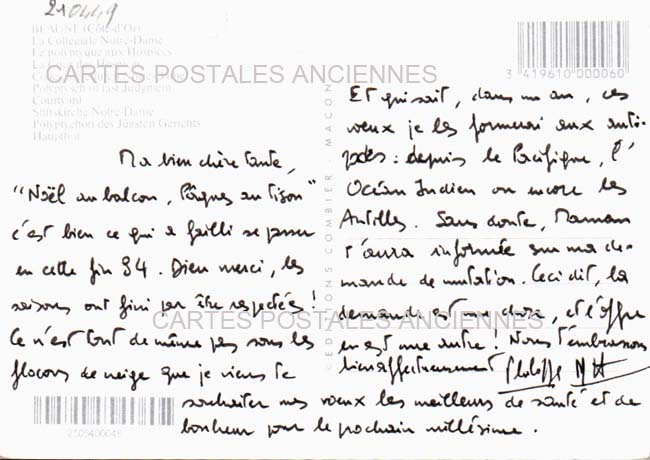 210449
BEAUNE (Côte-d'Or)
La Collégiale Notre-Dame
Le polyptyque aux Hospices
La Cour des Hospices
Polyptych of last Judgment
Courtyard
Stiftskirche Notre-Dame
Polyptychon des Jüngsten Gerichts
Haupthof
CARTES POSTALES ANCIENNES
3 419610 000060
EDITIONS COMBIER - MACON
Ma bien chère tante,
"Noël au balcon, Pâques au tison"
c'est bien ce qui a failli se passer
en cette fin 94. Dieu merci, les
saisons ont fini par être respectées !
Ce n'est tout de même pas sous les
flocons de neige que je viens te
souhaiter mes voeux les meilleurs de santé et de
bonheur pour le prochain millésime.
Et qui sait, dans un an, ces
voeux je les formerai aux anti-
podes : depuis le Pacifique, l'
Océan Indien ou encore les
Antilles. Sans doute, Maman
t'aura informée sur ma de-
mande de mutation. Ceci dit, la
demande est une chose, et l'offre
en est une autre ! Nous t'embrassons
bien affectueusement Philippe MH
CARTES POSTALES ANCIENNES